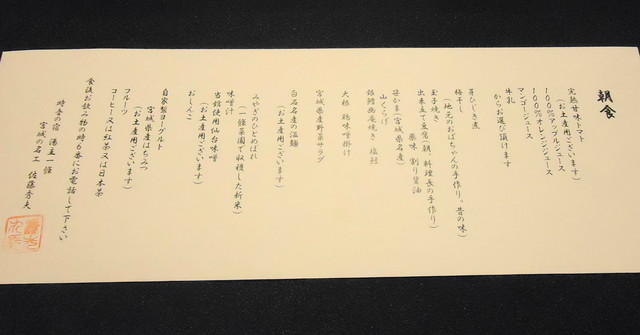 朝食
完熟甘味トマト
(お土産用ございます)
100%アップルジュース
100%オレンジジュース
マンゴージュース
牛乳
からお選び頂けます
芽ひじき煮
梅干し(地元のおばちゃんの手作り。昔の味)
玉子焼き
出来立て豆腐(朝、料理長の手作り)
薬味 割り醤油
笹かま(宮城県名産)
山くらげ
銀鱈幽庵焼き 塩麹
大根 鶏味噌掛け
宮城県産野菜サラダ
白石名産の温麺
(お土産用ございます)
みやぎのひとめぼれ
(一條菜園て収穫した新米)
味噌汁
当館使用仙台味噌
(お土産用ございます)
おしんこ
自家製ヨーグルト
宮城県産はちみつ
(お土産用ございます)
フルーツ
コーヒー又は紅茶又は日本茶
食後お飲み物の時6番にお電話して下さい
時音の宿 湯主一條
宮城の名工 佐藤秀夫